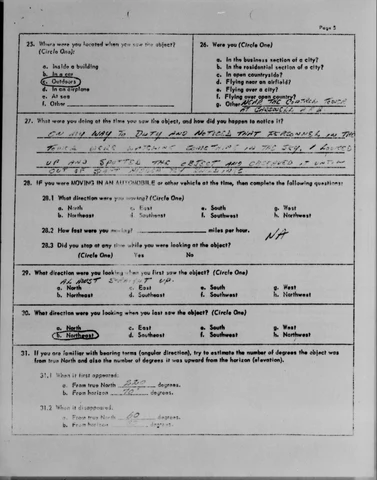 Page 5
25. Where were you located when you saw the object?
(Circle One):
a. Inside a building
b. In a car
c. Outdoors
d. In an airplane
e. At sea
f. Other
26. Were you (Circle One)
a. In the business section of a city?
b. In the residential section of a city?
c. In open countryside?
d. Flying near an airfield?
e. Flying over a city?
f. Flying over open country?
g. Other NEAR THE CONTROL TOWER
AT
27. What were you doing at the time you saw the object, and how did you happen to notice it?
ON MY WAY TO DUTY AND NOTICED THAT PERSONNEL IN THE
TOWER WERE WATCHING SOMETHING IN THE SKY. I LOOKED
UP AND SPOTTED THE OBJECT AND OBSERVED IT UNTIL
OUT OF
28. IF you were MOVING IN AN AUTOMOBILE or other vehicle at the time, then complete the following questions:
28.1 What direction were you moving? (Circle One)
a. North
b. Northeast
c. East
d. Southeast
e. South
f. Southwest
g. West
h. Northwest
28.2 How fast were you moving? miles per hour.
NA
28.3 Did you stop at any time while you were looking at the object?
(Circle One) Yes No
29. What direction were you looking when you first saw the object? (Circle One)
ALMOST STRAIGHT UP.
a. North
b. Northeast
c. East
d. Southeast
e. South
f. Southwest
g. West
h. Northwest
30. What direction were you looking when you last saw the object? (Circle One)
a. North
b. Northeast
c. East
d. Southeast
e. South
f. Southwest
g. West
h. Northwest
31. If you are familiar with bearing terms (angular direction), try to estimate the number of degrees the object was
from true North and also the number of degrees it was upward from the horizon (elevation).
31.1 When it first appeared:
a. From true North degrees.
b. From horizon degrees.
31.2 When it disappeared:
a. From true North degrees.
b. From horizon degrees.